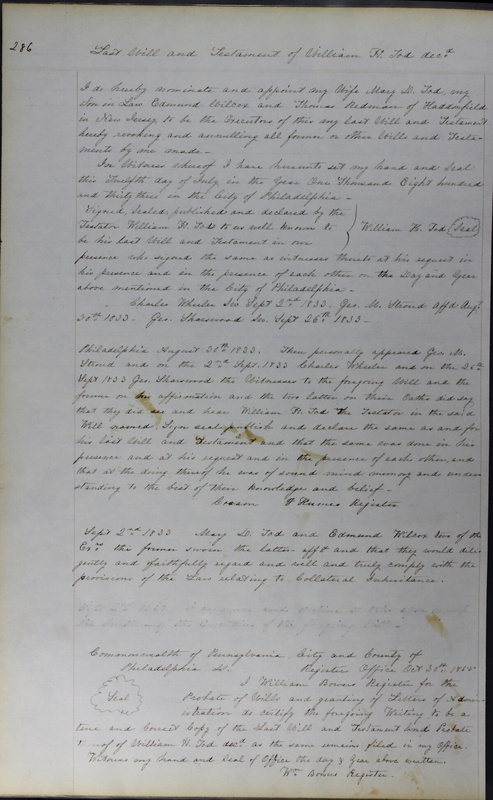 286
Last Will and Testament of William H. Tod decd
I do hereby nominate and appoint my Wife Mary D. Tod, my
Son in Law Edmund Wilcox and Thomas Redman of Haddonfield
in New Jersey to be the Executors of this my last Will and Testament
hereby revoking and annulling all former or other Wills and Testa-
ments by me made -
In Witness whereof I have hereunto set my hand and Seal
this Twelfth day of July in the Year One Thousand Eight hundred
and thirty three in the City of Philadelphia -
Signed, Sealed, published and declared by the
Testator William H. Tod to us well known to William H. Tod Seal
be his last Will and Testament in our
presence who signed the same as witnesses thereto at his request in
his presence and in the presence of each other on the Day and Year
above mentioned in the City of Philadelphia -
Charles Wheeler Sw. Sept 2nd 1833 - Geo. M. Stroud Affd Augt
30th 1833 - Geo. Sharswood Sw. Sept 26th 1833 -
Philadelphia August 30th 1833. Then personally appeared Geo M.
Stroud and on the 2nd Sept. 1833 Charles Wheeler and on the 26th
Sept 1833 Geo. Sharswood the Witnesses to the foregoing Will and the
former on his affirmation and the two latter on their Oaths did say
that they did see and hear William H. Tod the Testator in the said
Will named, Sign seal publish and declare the same as and for
his last Will and Testament and that the same was done in his
presence and at his request and in the presence of each other, and
that at the doing thereof he was of sound mind memory and under
standing to the best of their knowledge and belief -
Humes Register
Sept 2nd 1833 Mary D. Tod and Edmund Wilcox two of the
Exrs the former sworn the latter afft and that they would dili-
gently and faithfully regard and well and truly comply with the
provisions of the Law relating to Collateral Inheritance.
Commonwealth of Pennsylvania, City and County of
Philadelphia Ss. Register Office Oct 30th 1855
Seal I William Bowers Register for the
Probate of Wills and granting of Letters of Admin-
istration do certify the foregoing Writing to be a
true and Correct Copy of the Last Will and Testament and Probate
thereof of William H. Tod decd as the same remains filed in my Office.
Witness my hand and Seal of Office the day & Year above written
Wm Bowers Register.